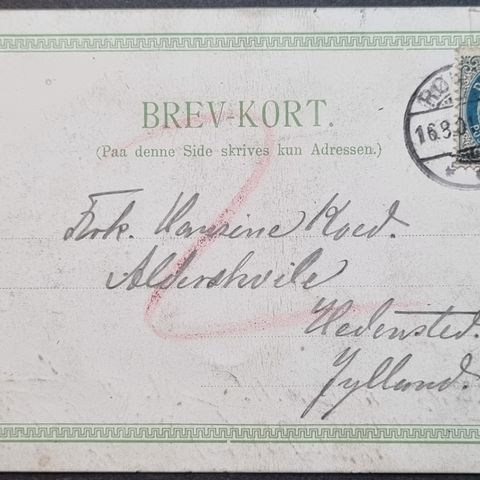 BREV-KORT.
(Paa denne Side skrives kun Adressen.)
RØ
16.8.0
D
P
2
Frk. Hansine Koed.
Alderskvile
Hedensted.
Jylland.